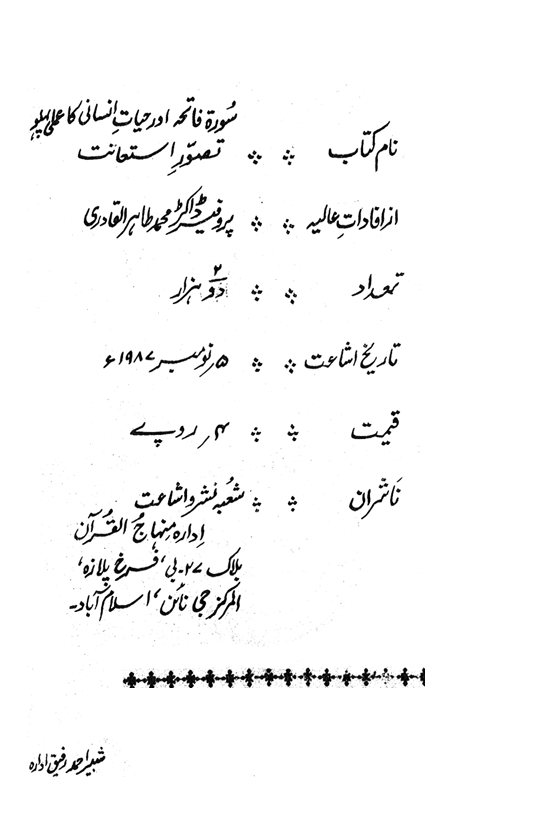 سُورۃ فاتحہ اور حیاتِ انسانی کا عملی پہلو
نام کتاب ⁘ ⁘ تصوّرِ استعانت
از افاداتِ عالیہ ⁘ ⁘ پروفیسر ڈاکٹر محمد طاہر القادری
تعداد ⁘ ⁘ ۲ دو ہزار
تاریخ اشاعت ⁘ ⁘ ۵؍ نومبر ۱۹۸۷ء
قیمت ⁘ ⁘ ۴؍ روپے
ناشران ⁘ ⁘ شعُبہ نشر و اشاعت
اِدارہ منہاجُ القُرآن
بلاک ۲۷-بی، فرخ پلازہ،
المرکز جی نائن، اسلام آباد۔
شبیر احمد رفیق ادارہ